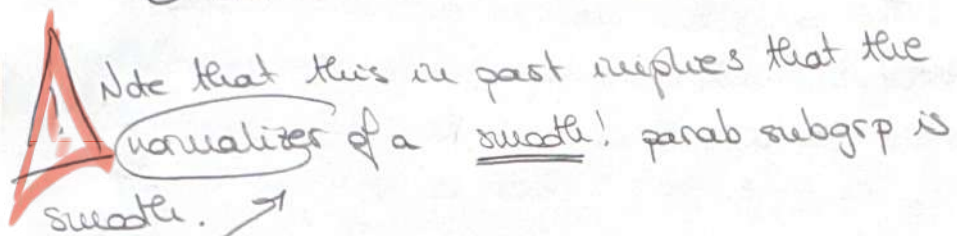 Note that this in part implies that the
normalizer of a smooth! parab subgrp is
smooth.